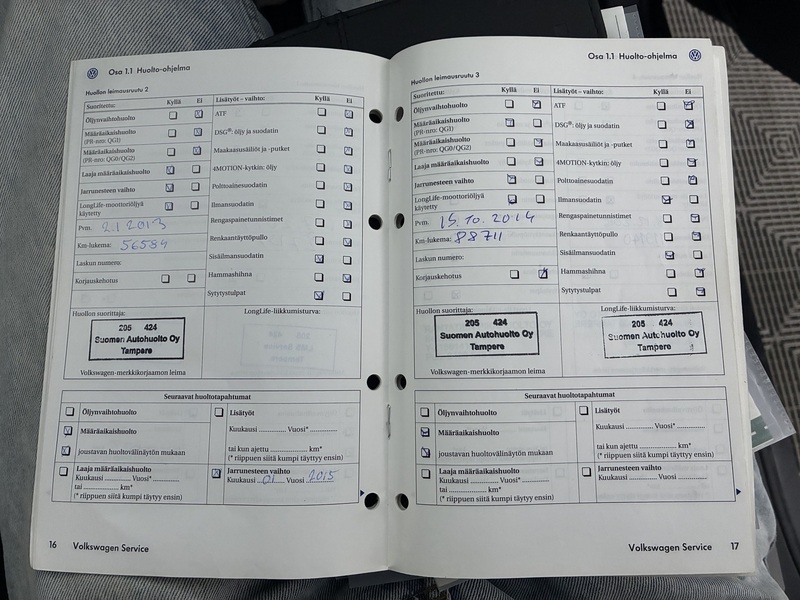 Osa 1.1 Huolto-ohjelma
Huollon leimausruutu 2
Suoritettu: Kyllä Ei
Öljynvaihtohuolto
Määräaikaishuolto
(PR-nro: QG1)
Määräaikaishuolto
(PR-nro: QG0/QG2)
Laaja määräaikaishuolto
Jarrunesteen vaihto
LongLife-moottoriöljyä
käytetty
Pvm. 2.1 2013
Km-lukema: 56584
Laskun numero:
Korjauskehotus
Lisätyöt – vaihto: Kyllä Ei
ATF
DSG®: öljy ja suodatin
Maakaasusäiliöt ja -putket
4MOTION-kytkin: öljy
Polttoainesuodatin
Ilmansuodatin
Rengaspainetunnistimet
Renkaantäyttöpullo
Sisäilmansuodatin
Hammashihna
Sytytystulpat
Huollon suorittaja:
205 424
Suomen Autohuolto Oy
Tampere
Volkswagen-merkkikorjaamon leima
LongLife-liikkumisturva:
Seuraavat huoltotapahtumat
Öljynvaihtohuolto
Määräaikaishuolto
joustavan huoltovälinäytön mukaan
Laaja määräaikaishuolto
Kuukausi .............. Vuosi* ..............
tai .................. km*
(* riippuen siitä kumpi täyttyy ensin)
Lisätyöt
Kuukausi .............. Vuosi* ..............
tai kun ajettu .................. km*
(* riippuen siitä kumpi täyttyy ensin)
Jarrunesteen vaihto
Kuukausi ..01.. Vuosi .2015
16 Volkswagen Service
Osa 1.1 Huolto-ohjelma
Huollon leimausruutu 3
Suoritettu: Kyllä Ei
Öljynvaihtohuolto
Määräaikaishuolto
(PR-nro: QG1)
Määräaikaishuolto
(PR-nro: QG0/QG2)
Laaja määräaikaishuolto
Jarrunesteen vaihto
LongLife-moottoriöljyä
käytetty
Pvm. 15.10.2014
Km-lukema: 88711
Laskun numero:
Korjauskehotus
Lisätyöt – vaihto: Kyllä Ei
ATF
DSG®: öljy ja suodatin
Maakaasusäiliöt ja -putket
4MOTION-kytkin: öljy
Polttoainesuodatin
Ilmansuodatin
Rengaspainetunnistimet
Renkaantäyttöpullo
Sisäilmansuodatin
Hammashihna
Sytytystulpat
Huollon suorittaja:
205 424
Suomen Autohuolto Oy
Tampere
Volkswagen-merkkikorjaamon leima
LongLife-liikkumisturva:
205 424
Suomen Autohuolto Oy
Tampere
Seuraavat huoltotapahtumat
Öljynvaihtohuolto
Määräaikaishuolto
joustavan huoltovälinäytön mukaan
Laaja määräaikaishuolto
Kuukausi .............. Vuosi* ..............
tai .................. km*
(* riippuen siitä kumpi täyttyy ensin)
Lisätyöt
Kuukausi .............. Vuosi* ..............
tai kun ajettu .................. km*
(* riippuen siitä kumpi täyttyy ensin)
Jarrunesteen vaihto
Kuukausi .............. Vuosi ..............
Volkswagen Service 17